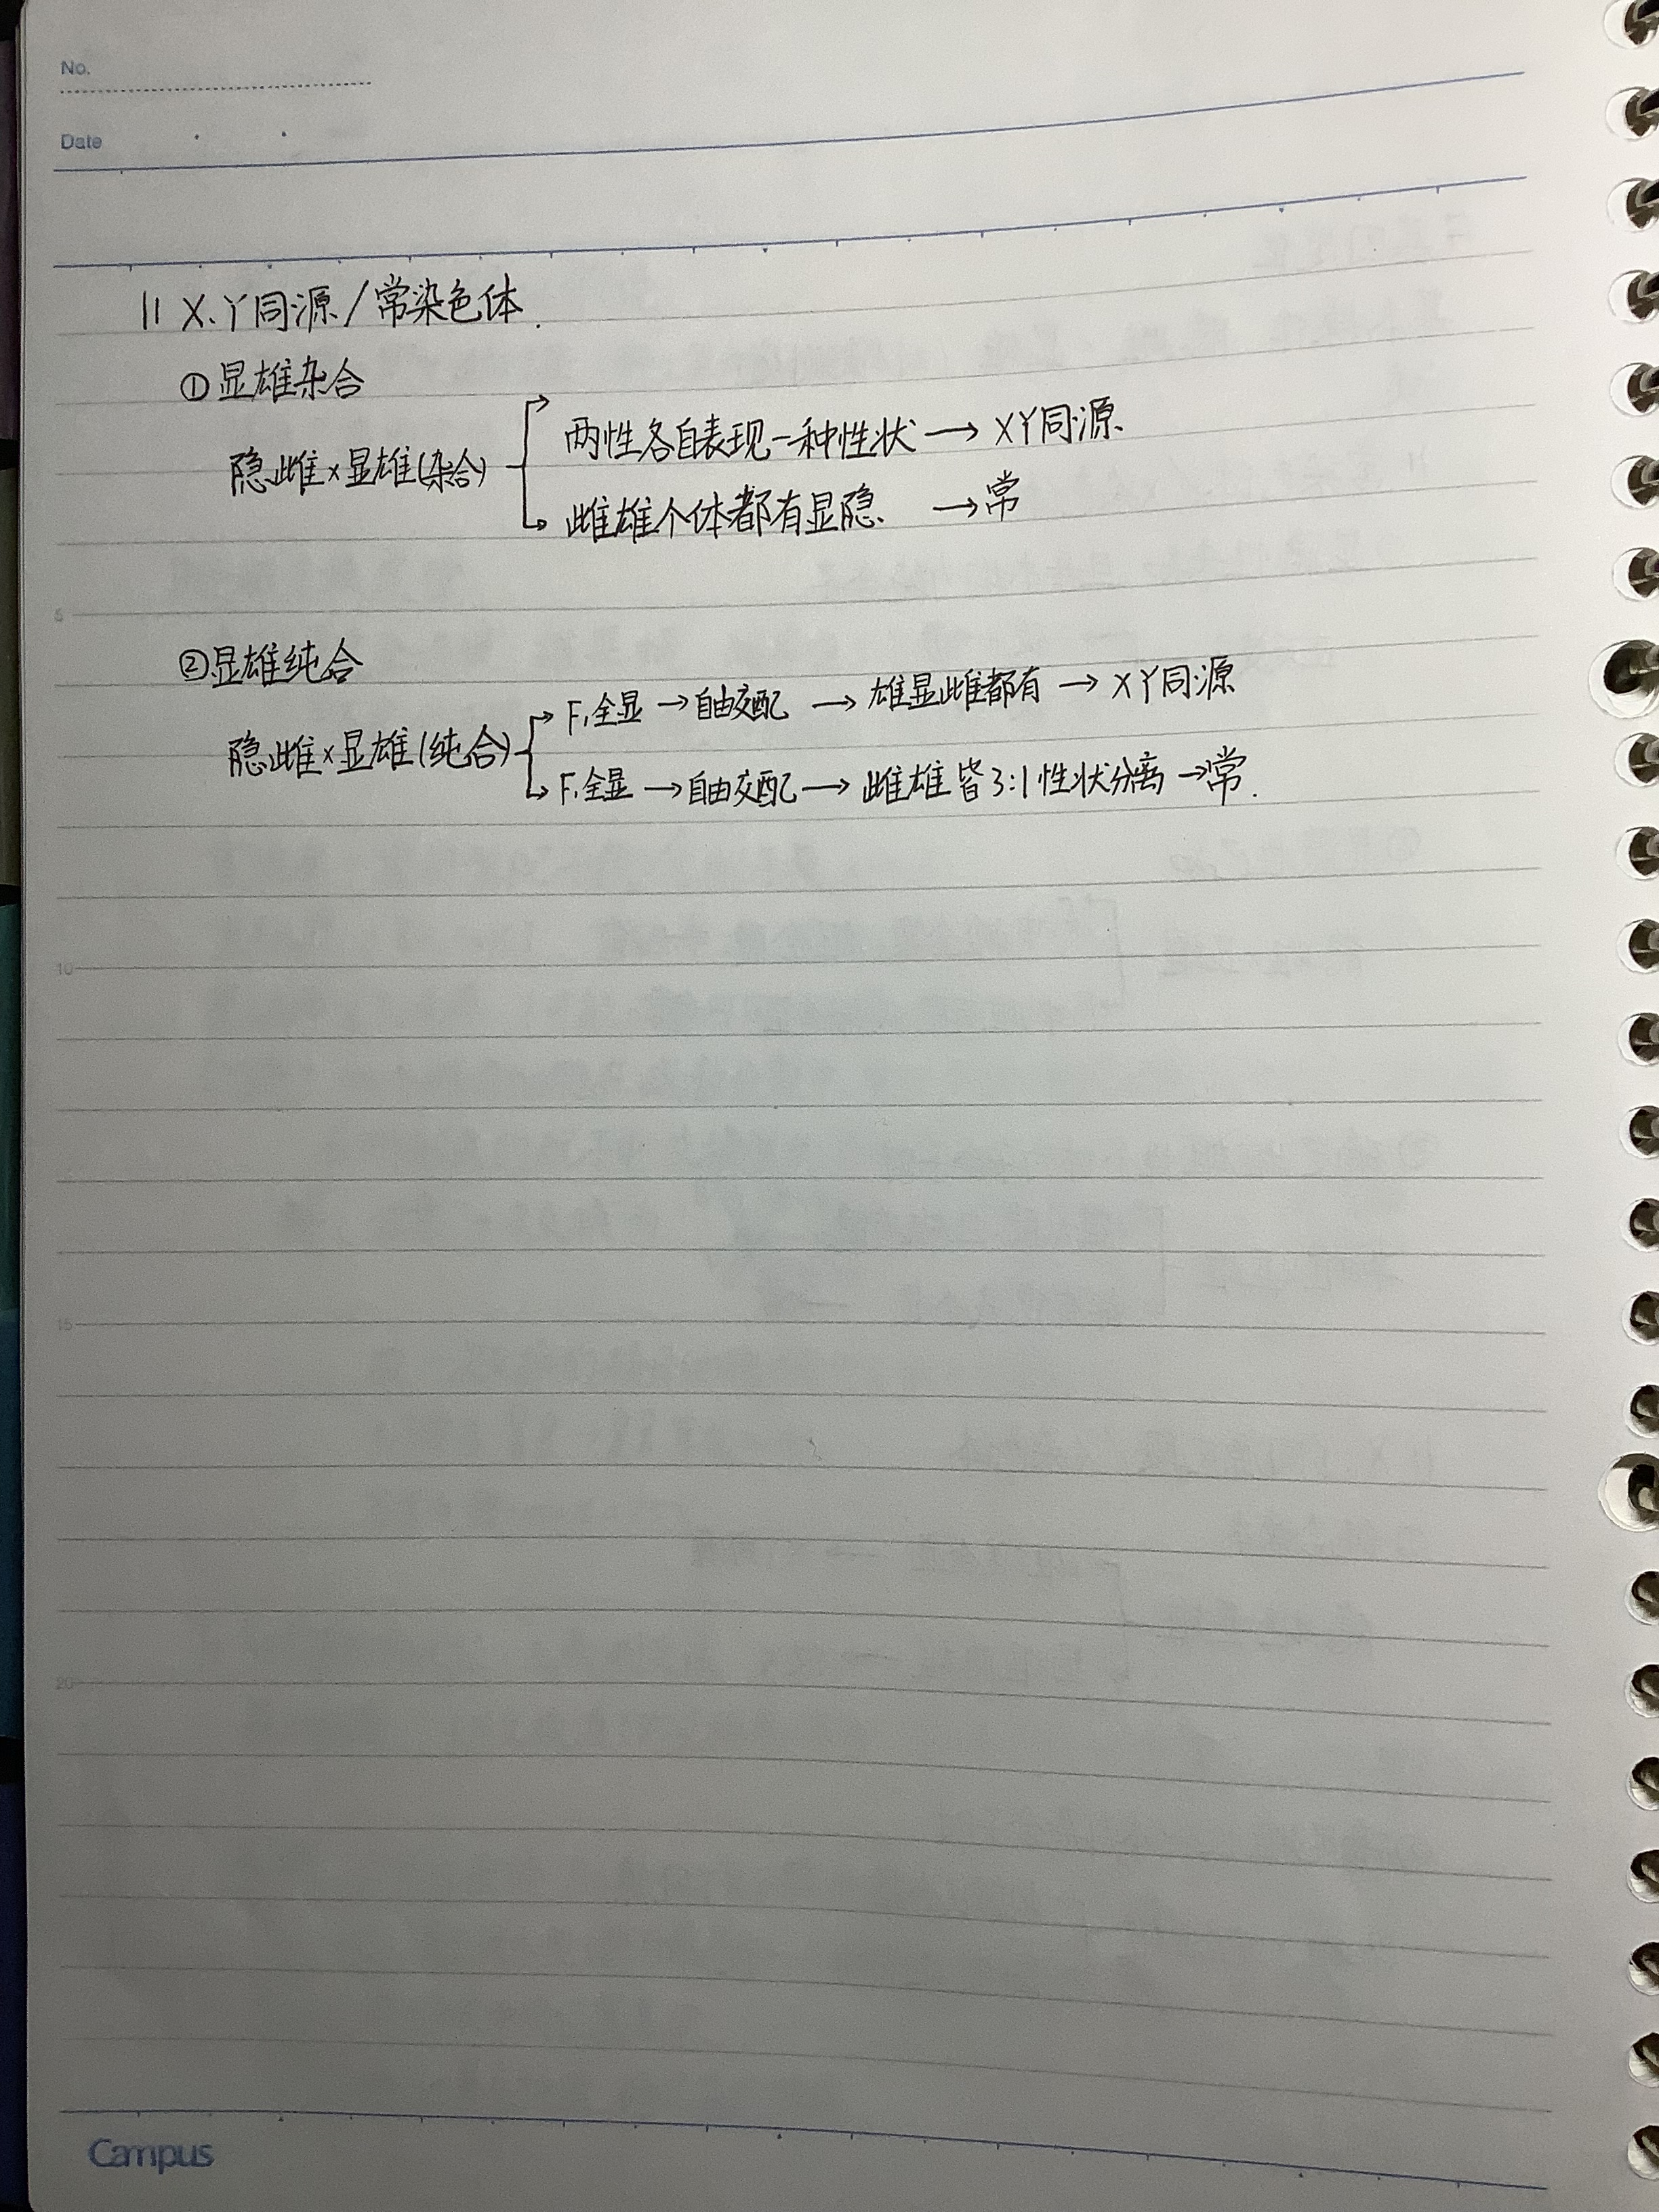 No.
Date
11 X、Y同源/常染色体.
①显雄杂合
两性各自表现一种性状→XY同源.
隐雌×显雄(杂合)
雌雄个体都有显隐. →常
5
②显雄纯合
F₁全显→自由交配→雄显雌都有→XY同源
隐雌×显雄(纯合)
F₁全显→自由交配→雌雄皆3:1性状分离→常.
10
15
20
Campus